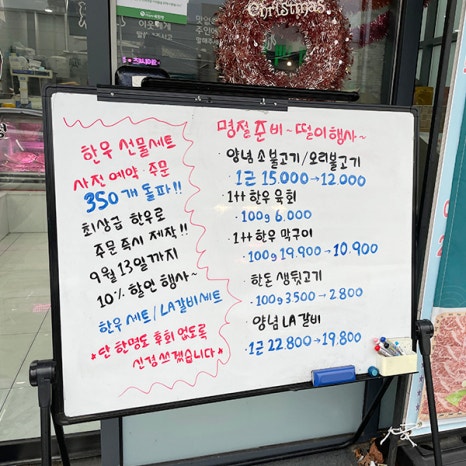 Christmas
한우 선물세트
사전예약·주문
350개 돌파!!
최상급 한우로
주문 즉시 제작!!
9월 13일까지
10% 할인 행사~
한우세트/LA갈비세트
*단 한명도 후회 없도록
신경쓰겠습니다*
명절준비~떨이행사~
·양념소불고기/오리불고기
1근 15.000→12.000
·1++ 한우 육회
100g 6.000
·1++ 한우 막구이
100g 19.900→10.900
·한돈 생뒷고기
100g 3500→2800
·양념 LA갈비
1근 22.800→19.800